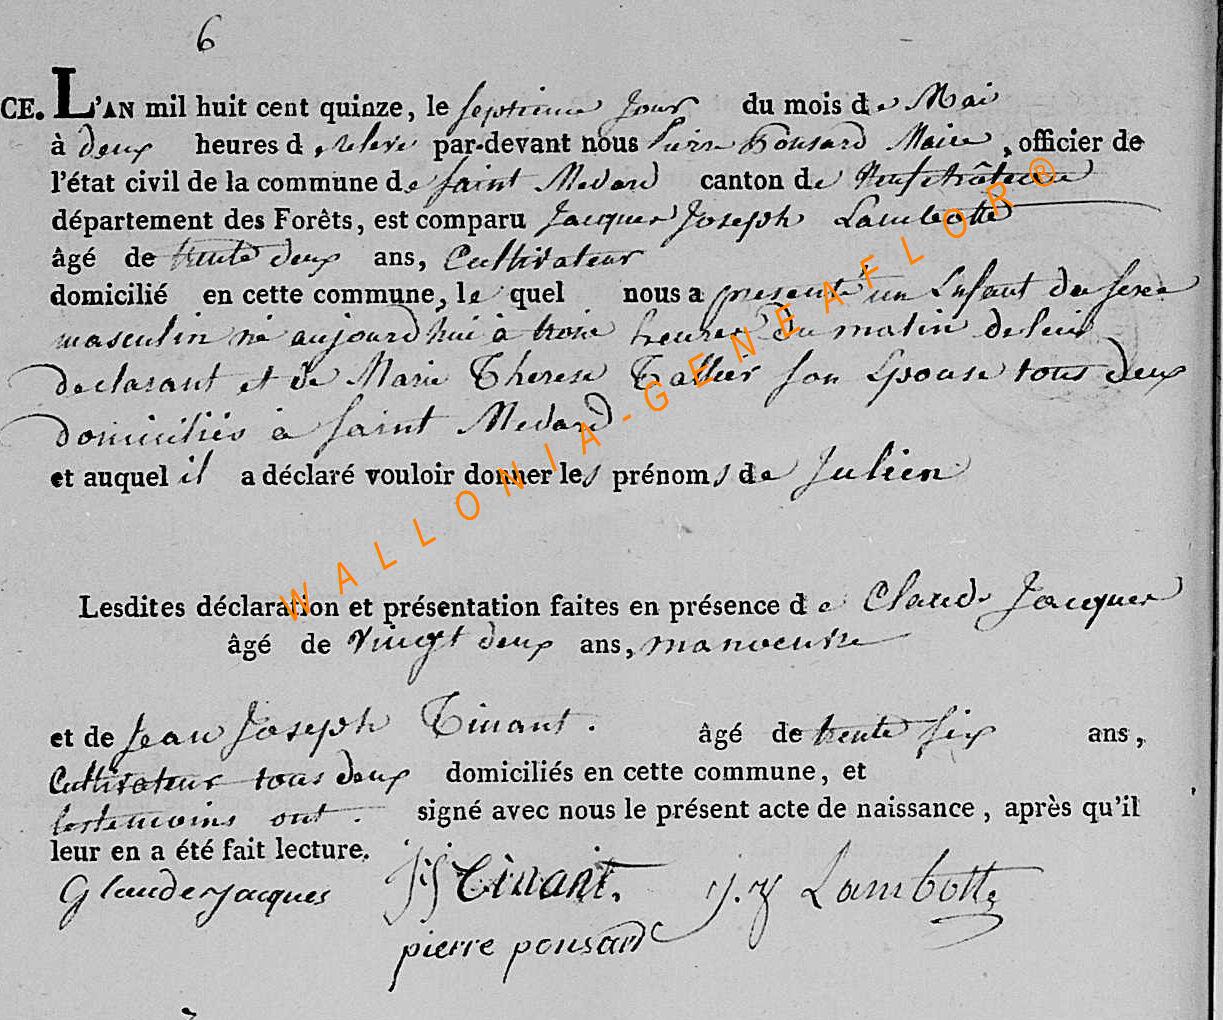 6
CE. L'AN mil huit cent quinze, le septieme jour du mois de Mai
à deux heures de relevé par-devant nous Pierre Ponsard Maire, officier de
l'état civil de la commune de Saint Medard canton de Neufchâteau
département des Forêts, est comparu Jacques Joseph Lambotte
âgé de trente deux ans, Cultivateur
domicilié en cette commune, le quel nous a presenté un Enfant du sexe
masculin né aujourd'hui à trois heures du matin de lui
declarant et de Marie Therese Tallier son Epouse tous deux
domiciliés à Saint Medard
et auquel il a déclaré vouloir donner les prénoms de Julien
Lesdites déclaration et présentation faites en présence de Claude Jacques
âgé de vingt deux ans, manoeuvre
et de Jean Joseph Tinant. âgé de trente six ans,
Cultivateur tous deux domiciliés en cette commune, et
les temoins ont. signé avec nous le présent acte de naissance, après qu'il
leur en a été fait lecture.
Glaude Jacques j j Tinant. j. j Lambotte
pierre ponsard
WALLONIA-GENEAFLOR®